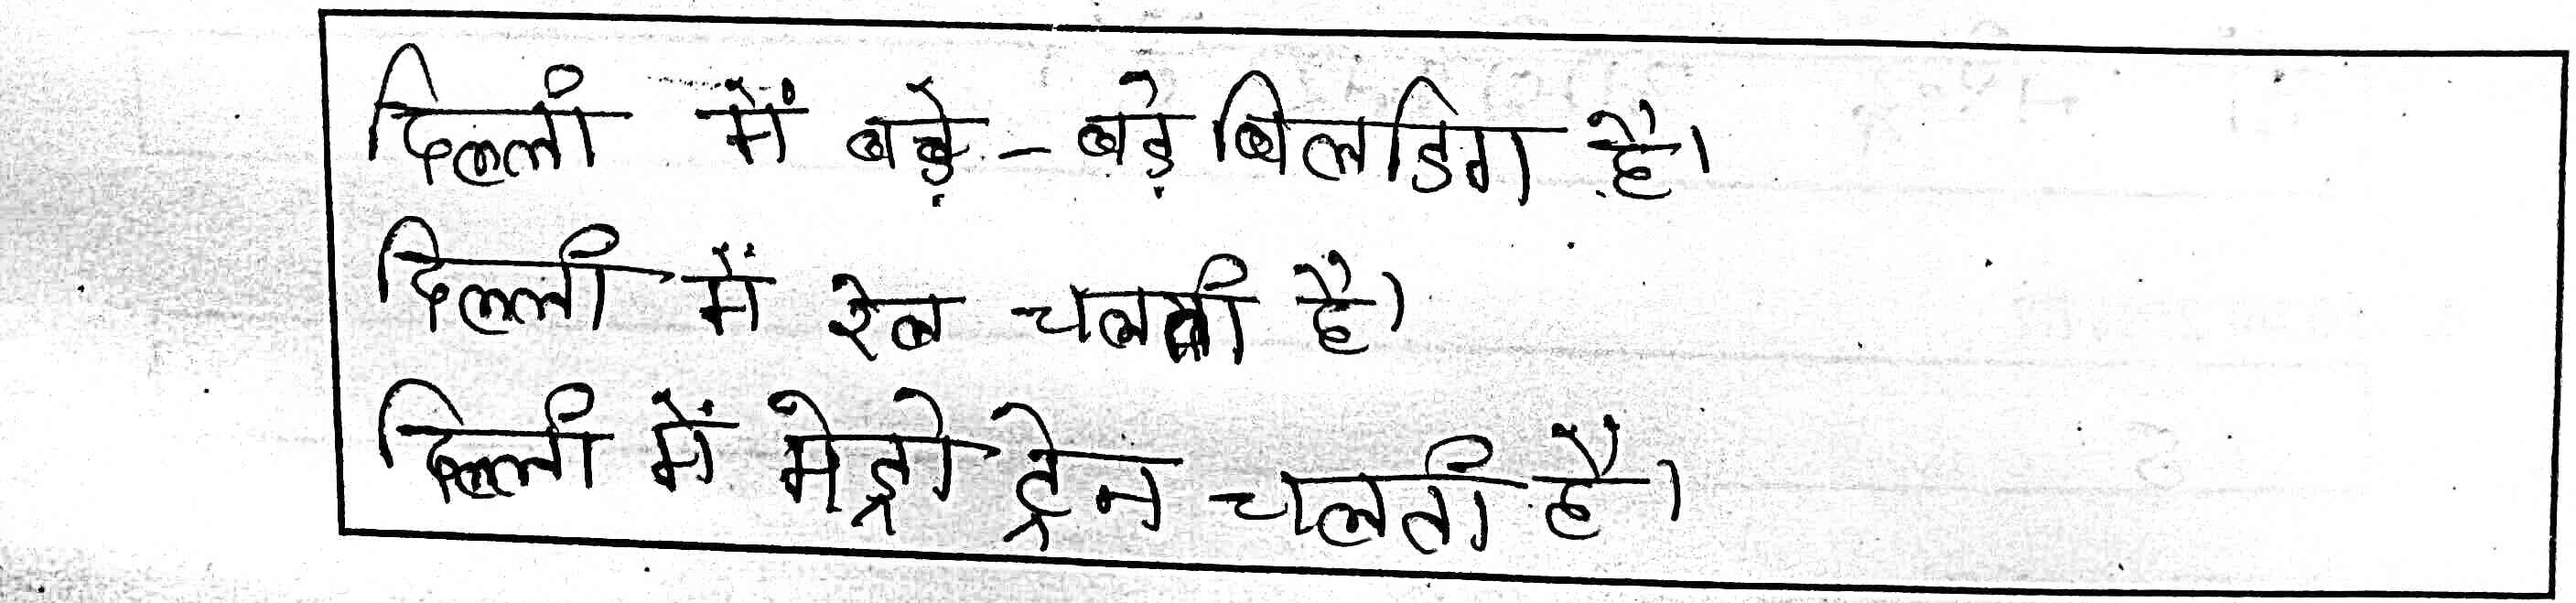 दिल्ली में बड़े - बड़े बिलडिग है।
दिल्ली में रेल चलती है।
दिल्ली में मेट्रो ट्रेन चलती है।